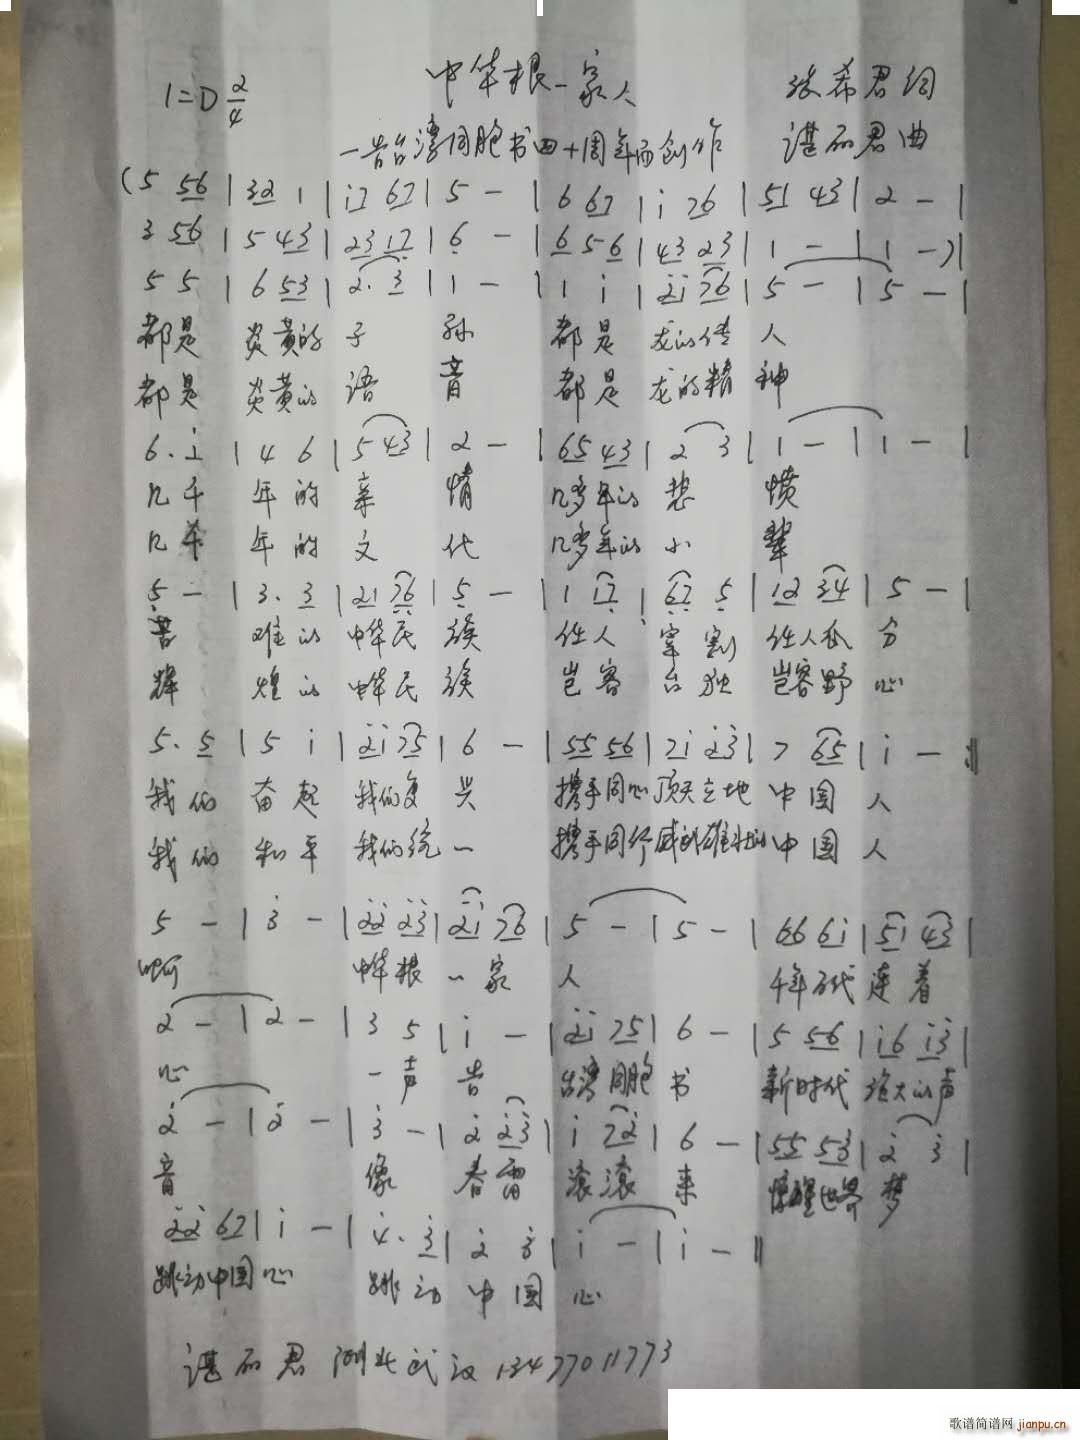 1=D 2/4 中华根一家人 张希君词
—告台湾同胞书四十周年而创作 谌石君曲
(5 56 | 32 1 | i7 67 | 5 - | 6 67 | i 76 | 51 43 | 2 - |
3 56 | 5 43 | 23 17 | 6 - | 6 5 6 | 43 23 | 1 - | 1 -)|
5 5 | 6 53 | 2. 3 | 1 - | 1 i | 2i 76 | 5 - | 5 - |
都是 炎黄的 子 孙 都是 龙的传人
都是 炎黄的 语 音 都是 龙的精神
6. i | 4 6 | 5 43 | 2 - | 65 43 | 2 3 | 1 - | 1 - |
几千 年的 亲 情 几多年的 悲 愤
几千 年的 文 化 几多年的
5 - | 3. 3 | 21 76 | 5 - | 1 17 | 67 5 | 12 34 | 5 - |
苦 难的 中华民 族 任人 宰割 任人瓜 分
辉 煌的 中华民 族 岂容 台独 岂容野 心
5. 5 | 5 i | 2i 75 | 6 - | 55 56 | 7i 23 | 7 65 | i - :||
我的 奋起 我的复 兴 携手同心 顶天立地 中国 人
我的 和平 我的统 一 携手同行 威武雄壮的 中国 人
5 - | 3 - | 22 23 | 2i 76 | 5 - | 5 - | 66 6i | 5i 43 |
啊 中华根 一家 人 千年百代 连着
2 - | 2 - | 3 5 | i - | 2i 75 | 6 - | 5 56 | i6 i3 |
心 一声 告 台湾同胞 书 新时代 强大的声
2 - | 2 - | 3 - | 2 23 | i 72 | 6 - | 55 53 | 2 3 |
音 像 春雷 滚滚 来 惊醒世界 梦
22 67 | i - | 4. 3 | 2 3 | i - | i - ||
跳动中国 心 跳动 中国 心
谌石君 湖北武汉 13477011773
歌谱简谱网 jianpu.cn